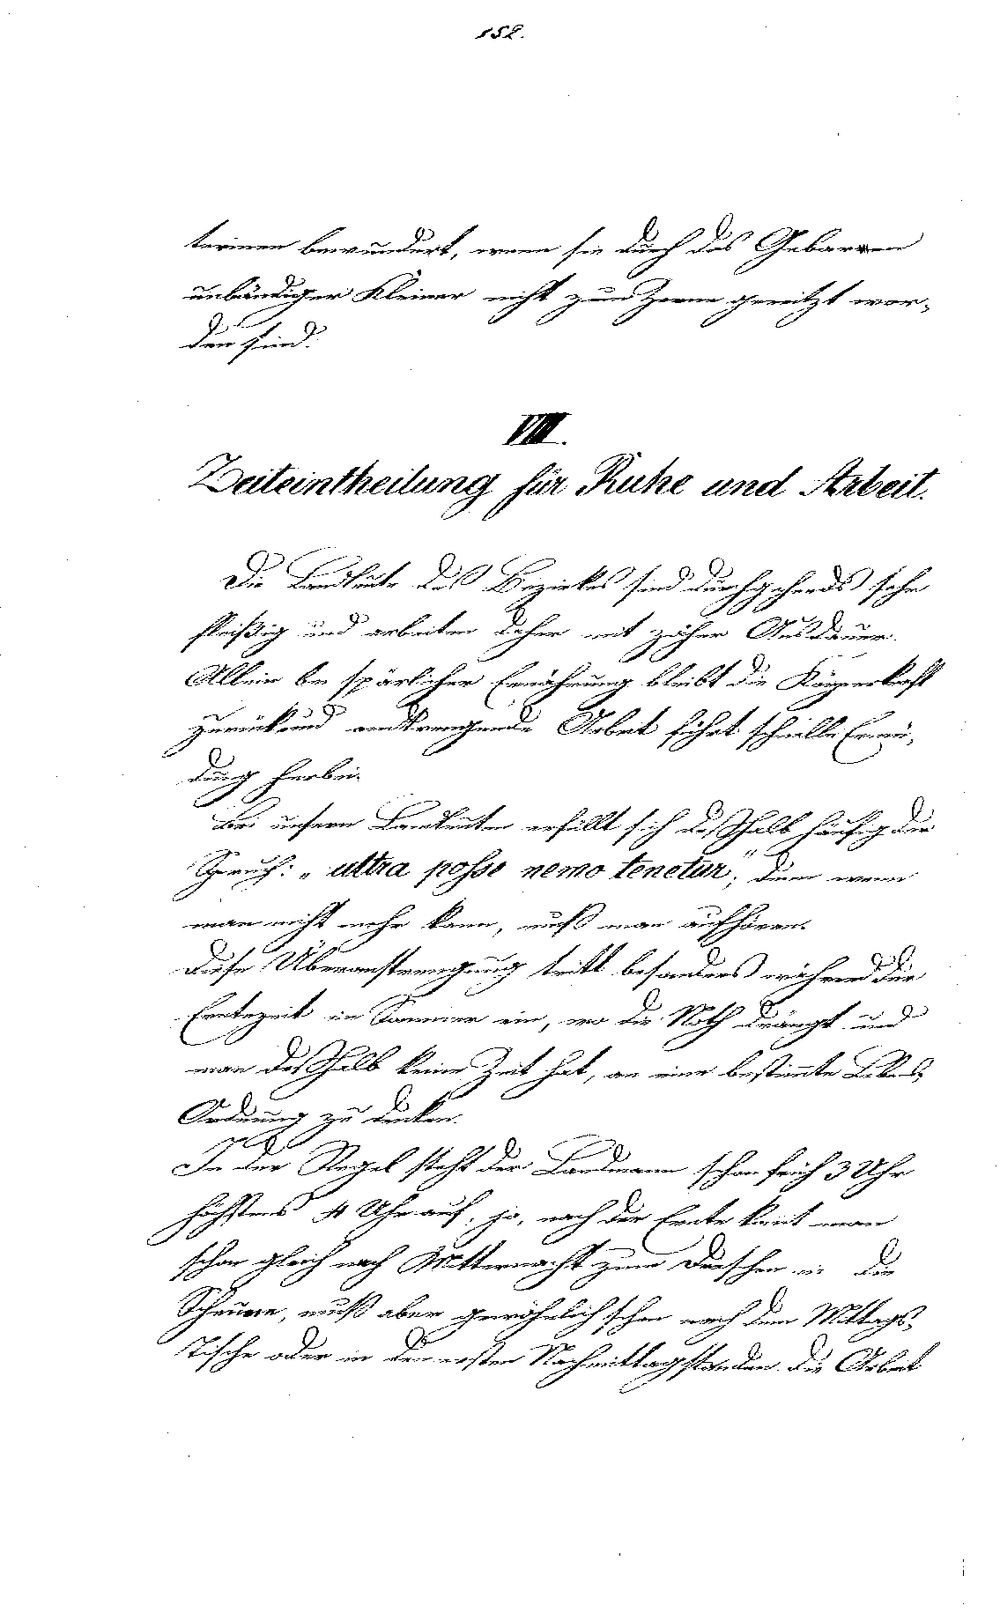 152.
terinen bewundert, wenn sie durch das Gebarren
unbändiger Kleiner nicht zum Zorne gereitzt wor-
den sind.
VIII.
Zeiteintheilung für Ruhe und Arbeit.
Die Landleute des Bezirkes sind durchgehends sehr
fleißig und arbeiten daher mit zäher Ausdauer.
Allein bei spärlicher Ernährung bleibt die Körperkraft
zurück und anstrengende Arbeit führt schnelle Ermü-
dung herbei.
Bei unsern Landleuten erfüllt sich deßhalb häufig der
Spruch: „ultra posse nemo tenetur", denn wenn
man nicht mehr kann, muß man aufhören.
Diese Überanstrengung tritt besonders während der
Erntezeit im Sommer ein, wo die Noth drängt und
man deßhalb keine Zeit hat, an eine bestimmte Lebens-
Ordnung zu denken.
In der Regel steht der Landmann schon früh 3 Uhr
höchstens 4 Uhr auf, ja, nach der Ernte kömt man
schon gleich nach Mitternacht zum Dreschen in die
Scheune, muß aber gewöhnlich schon nach dem Mittags-
Tische oder in den ersten Nachmittagsstunden die Arbeit